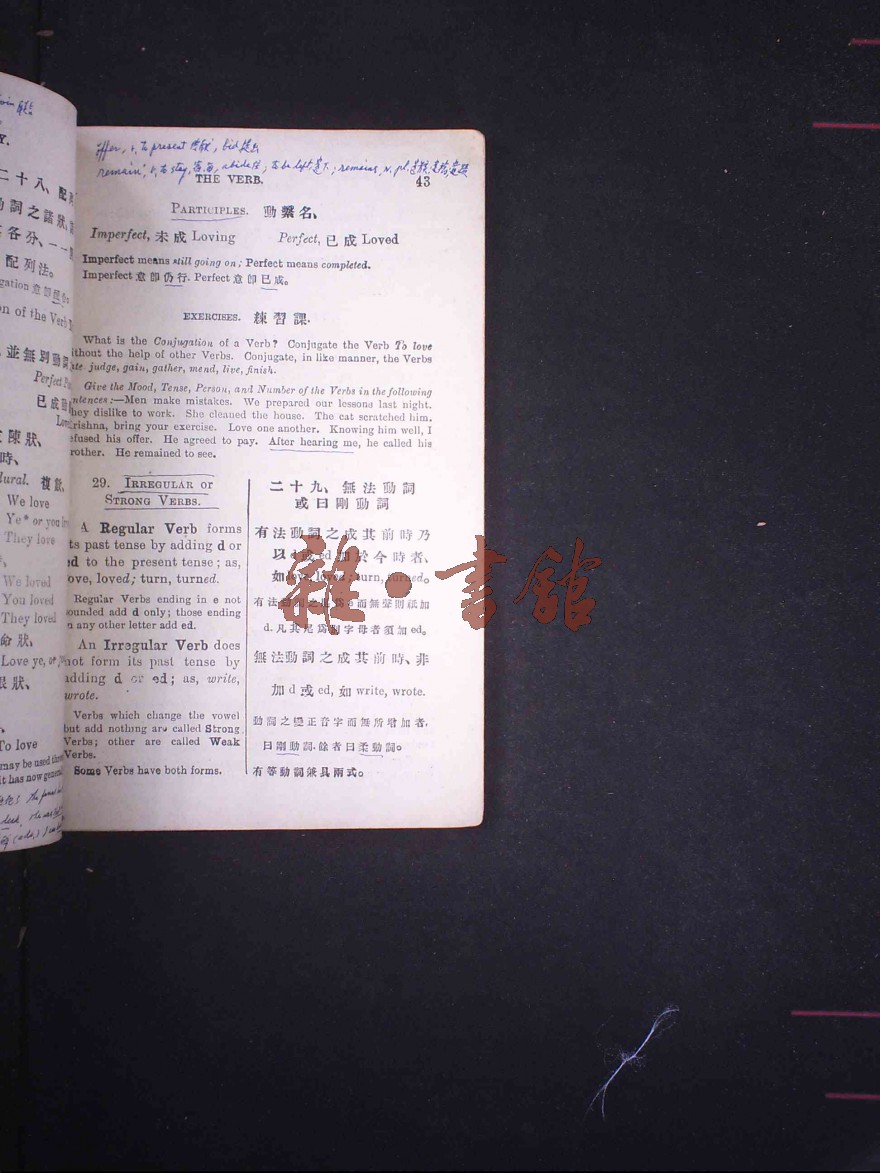 offer, v. to present 貢獻, bid 提出
remain, v. to stay, abide 住, to be left 遺下; remains, n. pl.
THE VERB. 43
PARTICIPLES. 動繫名、
Imperfect, 未成 Loving Perfect, 已成 Loved
Imperfect means still going on; Perfect means completed.
Imperfect 意卽仍行. Perfect 意卽已成。
EXERCISES. 練習課.
What is the Conjugation of a Verb? Conjugate the Verb To love
ithout the help of other Verbs. Conjugate, in like manner, the Verbs
ate judge, gain, gather, mend, live, finish.
Give the Mood, Tense, Person, and Number of the Verbs in the following
ntences:—Men make mistakes. We prepared our lessons last night.
hey dislike to work. She cleaned the house. The cat scratched him.
rishna, bring your exercise. Love one another. Knowing him well, I
efused his offer. He agreed to pay. After hearing me, he called his
rother. He remained to see.
29. IRREGULAR OR
STRONG VERBS.
A Regular Verb forms
ts past tense by adding d or
ed to the present tense; as,
ove, loved; turn, turned.
Regular Verbs ending in e not
sounded add d only; those ending
n any other letter add ed.
An Irregular Verb does
not form its past tense by
adding d or ed; as, write,
wrote.
Verbs which change the vowel
but add nothing are called Strong
Verbs; other are called Weak
Verbs.
Some Verbs have both forms.
二十九、無法動詞
或曰剛動詞
有法動詞之成其前時乃
以 d 或 ed 加於今時者、
如 love, loved; turn, turned。
有法動詞之尾爲 e 而無聲則祗加
d. 凡其尾爲別字母者須加 ed。
無法動詞之成其前時、非
加 d 或 ed, 如 write, wrote.
動詞之變正音字而無所增加者,
曰剛動詞. 餘者曰柔動詞。
有等動詞兼具兩式。
Y.
二十八、配列
動詞之諸狀、
各分、一一
配列法。
gation 意卽
on of the Verb
並無別動詞
Perfect
已成
陳狀、
時、
lural. 複數、
We love
Ye* or you
They love
We loved
You loved
They loved
命狀、
Love ye, or
狀、
To love
may be used
it has now
雜·書館